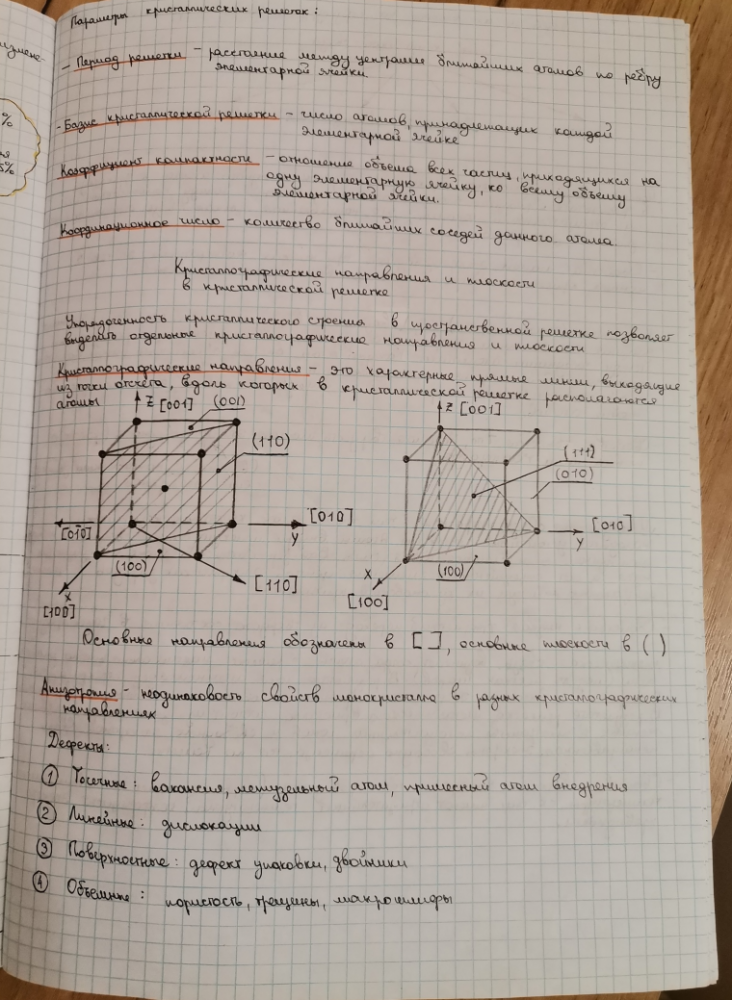 Параметры кристаллических решеток:
- Период решетки - расстояние между центрами ближайших атомов по ребру
элементарной ячейки.
- Базис кристаллической решетки - число атомов, принадлежащих каждой
элементарной ячейке
Коэффициент компактности - отношение объема всех частиц, приходящихся на
одну элементарную ячейку, ко всему объему
элементарной ячейки.
Координационное число - количество ближайших соседей данного атома.
Кристаллографические направления и плоскости
в кристаллической решетке
Упорядоченность кристаллического строения в пространственной решетке позволяет
выделить отдельные кристаллографические направления и плоскости
Кристаллографические направления - это характерные прямые линии, выходящие
из точки отсчета, вдоль которых в кристаллической решетке располагаются
атомы
Z [001] (001)
(110)
[01̄0]
[010]
Y
(100)
[110]
X
[100]
Z [001]
(111)
(010)
[010]
Y
(100)
X
[100]
Основные направления обозначены в [ ], основные плоскости в ( )
Анизотропия - неодинаковость свойств монокристалла в разных кристаллографических
направлениях
Дефекты:
① Точечные: вакансия, межузельный атом, примесный атом внедрения
② Линейные: дислокации
③ Поверхностные: дефект упаковки, двойники
④ Объемные: пористость, трещины, макрошлифы